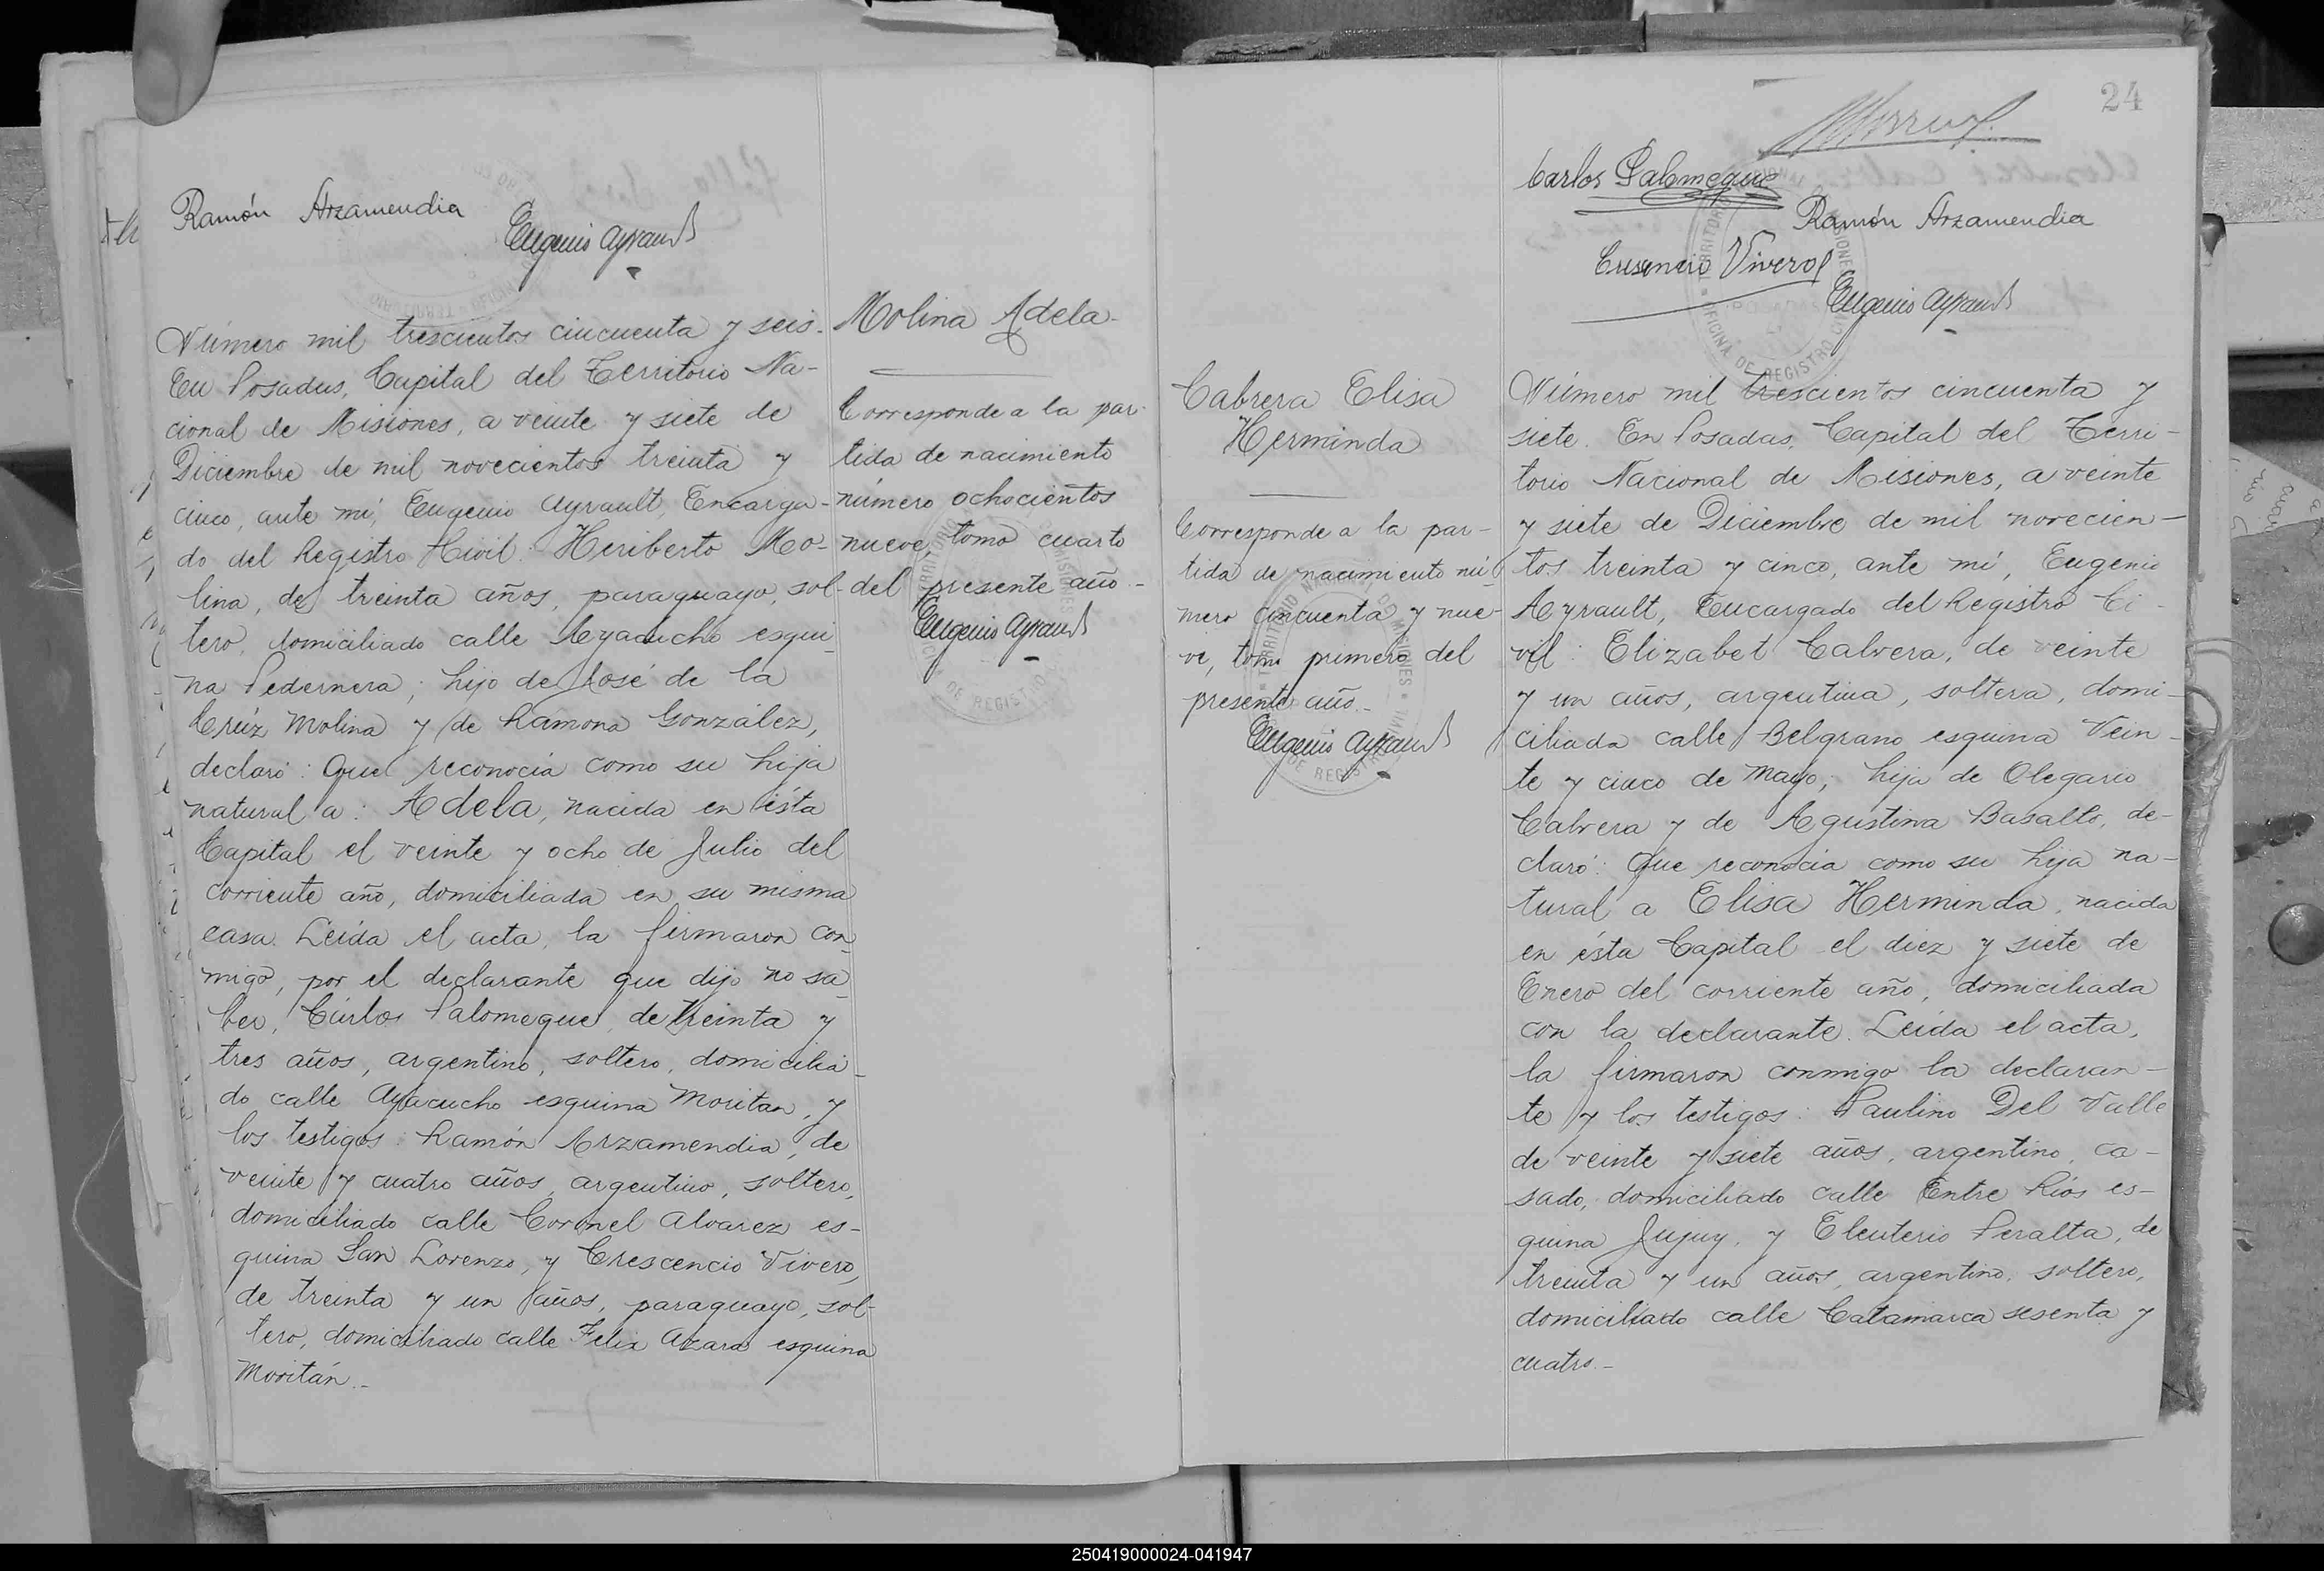 Ramón Arzamendia
Eugenio Ayrault
Número mil trescientos cincuenta y seis.
En Posadas, Capital del Territorio Na-
cional de Misiones, a veinte y siete de
Diciembre de mil novecientos treinta y
cinco, ante mí, Eugenio Ayrault, Encarga-
do del Registro Civil: Heriberto Mo-
lina, de treinta años, paraguayo, sol-
tero, domiciliado calle Ayacucho esqui-
na Pedernera; hijo de José de la
Crúz Molina y de Ramona González,
declaró: Que reconocía como su hija
natural a: Adela, nacida en ésta
Capital el veinte y ocho de Julio del
corriente año, domiciliada en su misma
casa. Leída el acta, la firmaron con
migo, por el declarante que dijo no sa-
ber, Cárlos Palomeque, de treinta y
tres años, argentino, soltero, domicilia-
do calle Ayacucho esquina Moritan, y
los testigos: Ramón Arzamendia, de
veinte y cuatro años, argentino, soltero,
domiciliado calle Coronel Alvarez es-
quina San Lorenzo, y Crescencio Vivero,
de treinta y un años, paraguayo, sol-
tero, domiciliado calle Felix Azara esquina
Moritán.-
Molina Adela
Corresponde a la par-
tida de nacimiento
número ochocientos
nueve, tomo cuarto
del presente año-
Eugenio Ayrault
Cabrera Elisa
Herminda
Corresponde a la par-
tida de nacimiento nú-
mero cincuenta y nue-
ve, tomo primero del
presente año.-
Eugenio Ayrault
24
Carlos Palomeque
Ramón Arzamendia
Cresencio Vivero
Eugenio Ayrault
OFICINA DE REGISTRO CIVIL
Número mil trescientos cincuenta y
siete. En Posadas, Capital del Terri-
torio Nacional de Misiones, a veinte
y siete de Diciembre de mil novecien-
tos treinta y cinco, ante mí, Eugenio
Ayrault, Encargado del Registro Ci-
vil: Elizabet Cabrera, de veinte
y un años, argentina, soltera, domi-
ciliada calle Belgrano esquina Vein-
te y cinco de Mayo; hija de Olegario
Cabrera y de Agustina Basalto, de-
claró: Que reconocía como su hija na-
tural a Elisa Herminda, nacida
en ésta Capital el diez y siete de
Enero del corriente año, domiciliada
con la declarante. Leída el acta,
la firmaron conmigo la declaran-
te y los testigos: Paulino Del Valle
de veinte y siete años, argentino, ca-
sado, domiciliado calle Entre Ríos es-
quina Jujuy, y Eleuterio Peralta, de
treinta y un años, argentino, soltero,
domiciliado calle Catamarca sesenta y
cuatro.-
250419000024-041947